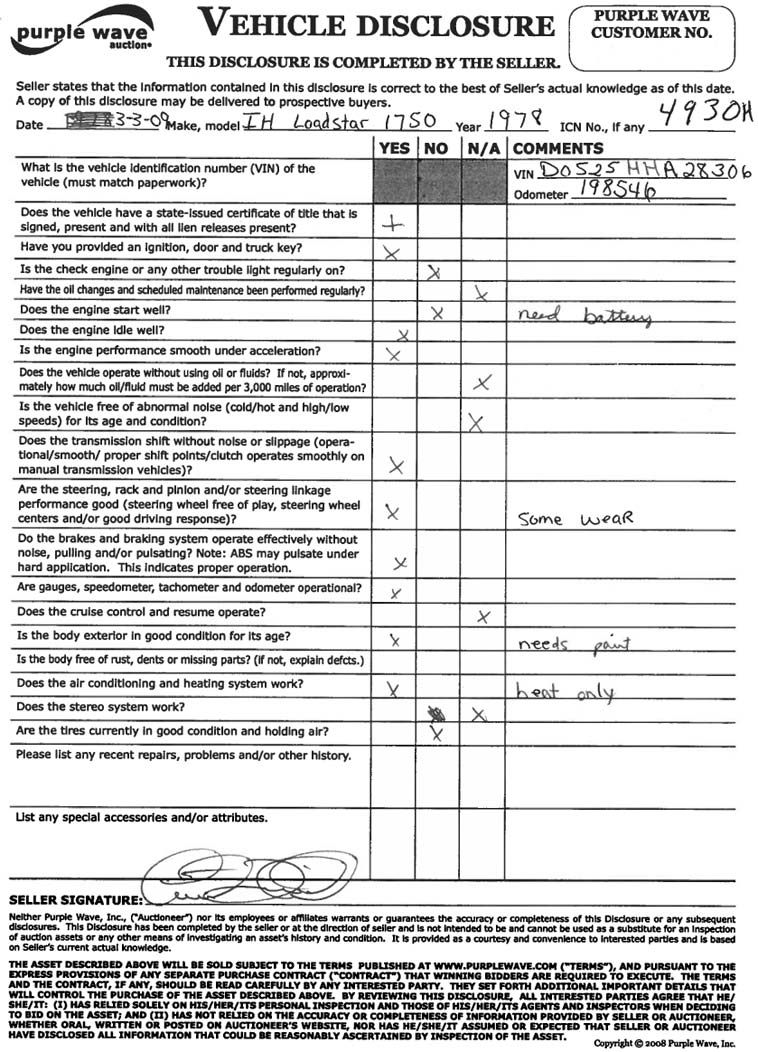 purple wave
auction
VEHICLE DISCLOSURE
THIS DISCLOSURE IS COMPLETED BY THE SELLER.
PURPLE WAVE
CUSTOMER NO.
Seller states that the information contained in this disclosure is correct to the best of Seller's actual knowledge as of this date.
A copy of this disclosure may be delivered to prospective buyers.
Date 3-3-09 Make, model IH Loadstar 1750 Year 1978 ICN No., if any 4930H
YES NO N/A COMMENTS
What is the vehicle identification number (VIN) of the VIN D0525HHA28306
vehicle (must match paperwork)? Odometer 198546
Does the vehicle have a state-issued certificate of title that is
signed, present and with all lien releases present? +
Have you provided an ignition, door and truck key? X
Is the check engine or any other trouble light regularly on? X
Have the oil changes and scheduled maintenance been performed regularly? X
Does the engine start well? X need battery
Does the engine idle well? X
Is the engine performance smooth under acceleration? X
Does the vehicle operate without using oil or fluids? If not, approxi-
mately how much oil/fluid must be added per 3,000 miles of operation? X
Is the vehicle free of abnormal noise (cold/hot and high/low
speeds) for its age and condition? X
Does the transmission shift without noise or slippage (opera-
tional/smooth/ proper shift points/clutch operates smoothly on
manual transmission vehicles)? X
Are the steering, rack and pinion and/or steering linkage
performance good (steering wheel free of play, steering wheel
centers and/or good driving response)? X some weaR
Do the brakes and braking system operate effectively without
noise, pulling and/or pulsating? Note: ABS may pulsate under
hard application. This indicates proper operation. X
Are gauges, speedometer, tachometer and odometer operational? X
Does the cruise control and resume operate? X
Is the body exterior in good condition for its age? X needs paint
Is the body free of rust, dents or missing parts? (if not, explain defcts.)
Does the air conditioning and heating system work? X heat only
Does the stereo system work? X
Are the tires currently in good condition and holding air? X
Please list any recent repairs, problems and/or other history.
List any special accessories and/or attributes.
SELLER SIGNATURE:
Neither Purple Wave, Inc., ("Auctioneer") nor its employees or affiliates warrants or guarantees the accuracy or completeness of this Disclosure or any subsequent
disclosures. This Disclosure has been completed by the seller or at the direction of seller and is not intended to be and cannot be used as a substitute for an inspection
of auction assets or any other means of investigating an asset's history and condition. It is provided as a courtesy and convenience to interested parties and is based
on Seller's current actual knowledge.
THE ASSET DESCRIBED ABOVE WILL BE SOLD SUBJECT TO THE TERMS PUBLISHED AT WWW.PURPLEWAVE.COM ("TERMS"), AND PURSUANT TO THE
EXPRESS PROVISIONS OF ANY SEPARATE PURCHASE CONTRACT ("CONTRACT") THAT WINNING BIDDERS ARE REQUIRED TO EXECUTE. THE TERMS
AND THE CONTRACT, IF ANY, SHOULD BE READ CAREFULLY BY ANY INTERESTED PARTY. THEY SET FORTH ADDITIONAL IMPORTANT DETAILS THAT
WILL CONTROL THE PURCHASE OF THE ASSET DESCRIBED ABOVE. BY REVIEWING THIS DISCLOSURE, ALL INTERESTED PARTIES AGREE THAT HE/
SHE/IT: (I) HAS RELIED SOLELY ON HIS/HER/ITS PERSONAL INSPECTION AND THOSE OF HIS/HER/ITS AGENTS AND INSPECTORS WHEN DECIDING
TO BID ON THE ASSET; AND (II) HAS NOT RELIED ON THE ACCURACY OR COMPLETENESS OF INFORMATION PROVIDED BY SELLER OR AUCTIONEER,
WHETHER ORAL, WRITTEN OR POSTED ON AUCTIONEER'S WEBSITE, NOR HAS HE/SHE/IT ASSUMED OR EXPECTED THAT SELLER OR AUCTIONEER
HAVE DISCLOSED ALL INFORMATION THAT COULD BE REASONABLY ASCERTAINED BY INSPECTION OF THE ASSET.
Copyright © 2008 Purple Wave, Inc.